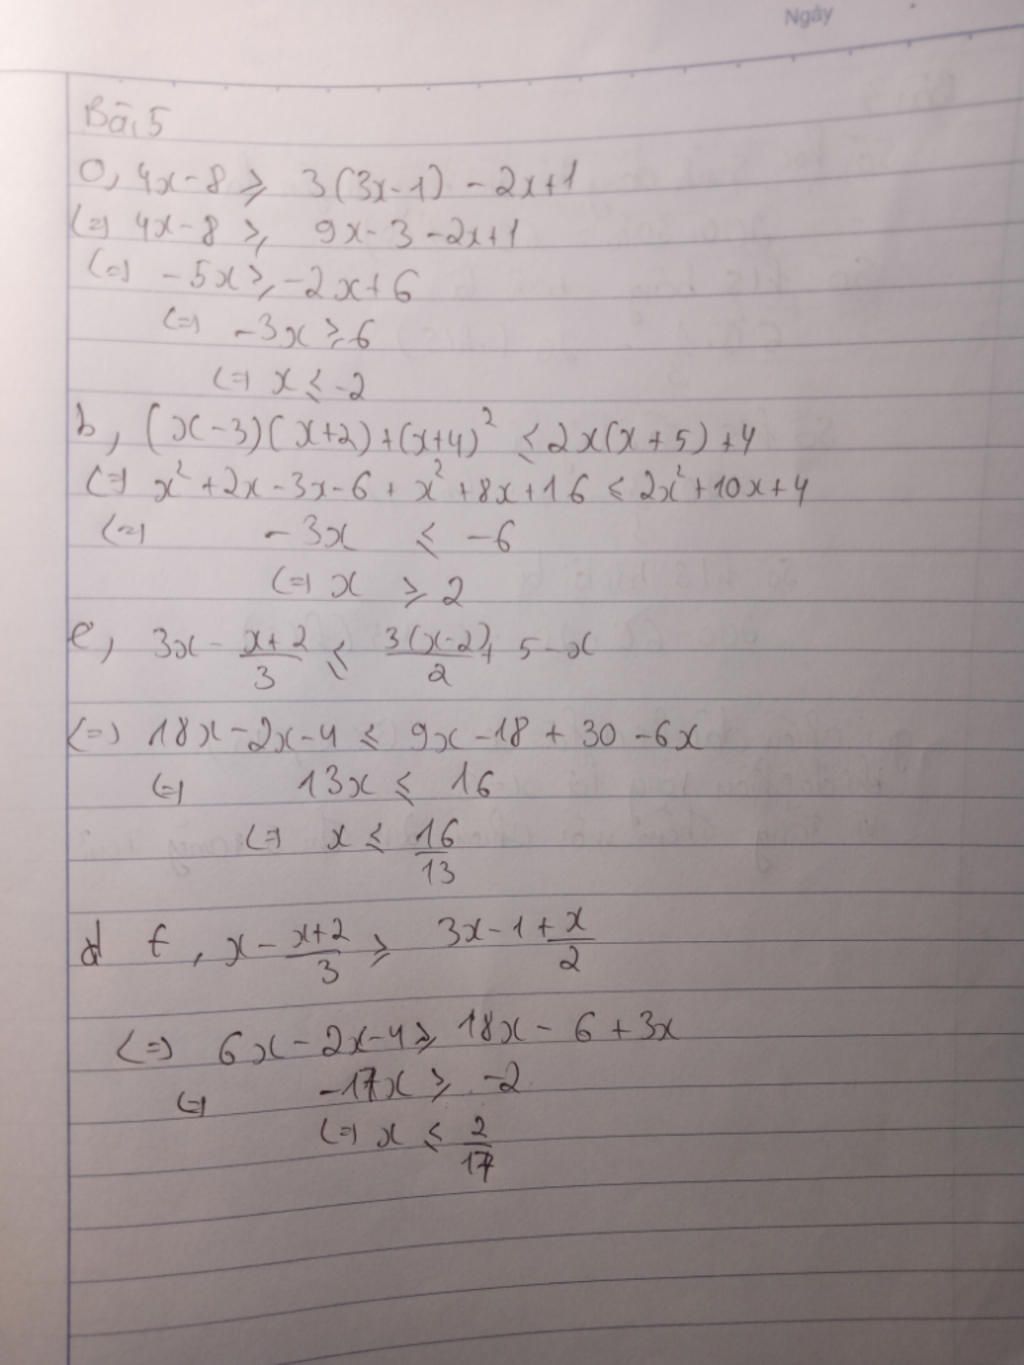 Ngày
Bài 5
a, 4x-8 ≥ 3(3x-1) - 2x+1
(=) 4x-8 ≥ 9x-3-2x+1
(=) -5x ≥ -2x+6
(=) -3x ≥ 6
(=) x ≤ -2
b, (x-3)(x+2)+(x+4)² ≤ 2x(x+5)+4
(=) x²+2x-3x-6+x²+8x+16 ≤ 2x²+10x+4
(=) -3x ≤ -6
(=) x ≥ 2
c, 3x - \frac{x+2}{3} ≤ \frac{3(x-2)}{2} + 5-x
(=) 18x-2x-4 ≤ 9x-18+30-6x
(=) 13x ≤ 16
(=) x ≤ \frac{16}{13}
d f, x - \frac{x+2}{3} ≥ 3x-1+\frac{x}{2}
(=) 6x-2x-4 ≥ 18x-6+3x
(=) -17x ≥ -2
(=) x ≤ \frac{2}{17}